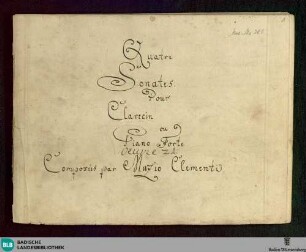 Quatre
Sonates
Pour
Clavecin
ou
Piano Forte
Oeuvre
Composées par Muzio Clementi
BLB
BADISCHE
LANDESBIBLIOTHEK